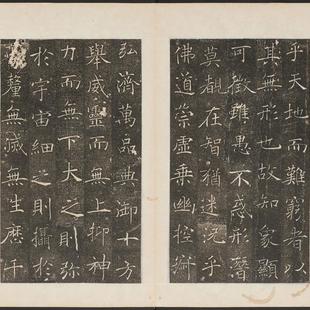 乎天地而難窮者以
其無形也故知象顯
可徵雖愚不惑形潛
莫覩在智猶迷況乎
佛道崇虛乘幽控寂
弘濟萬品典御十方
舉威靈而無上抑神
力而無下大之則彌
於宇宙細之則攝於
釐無滅無生歷千